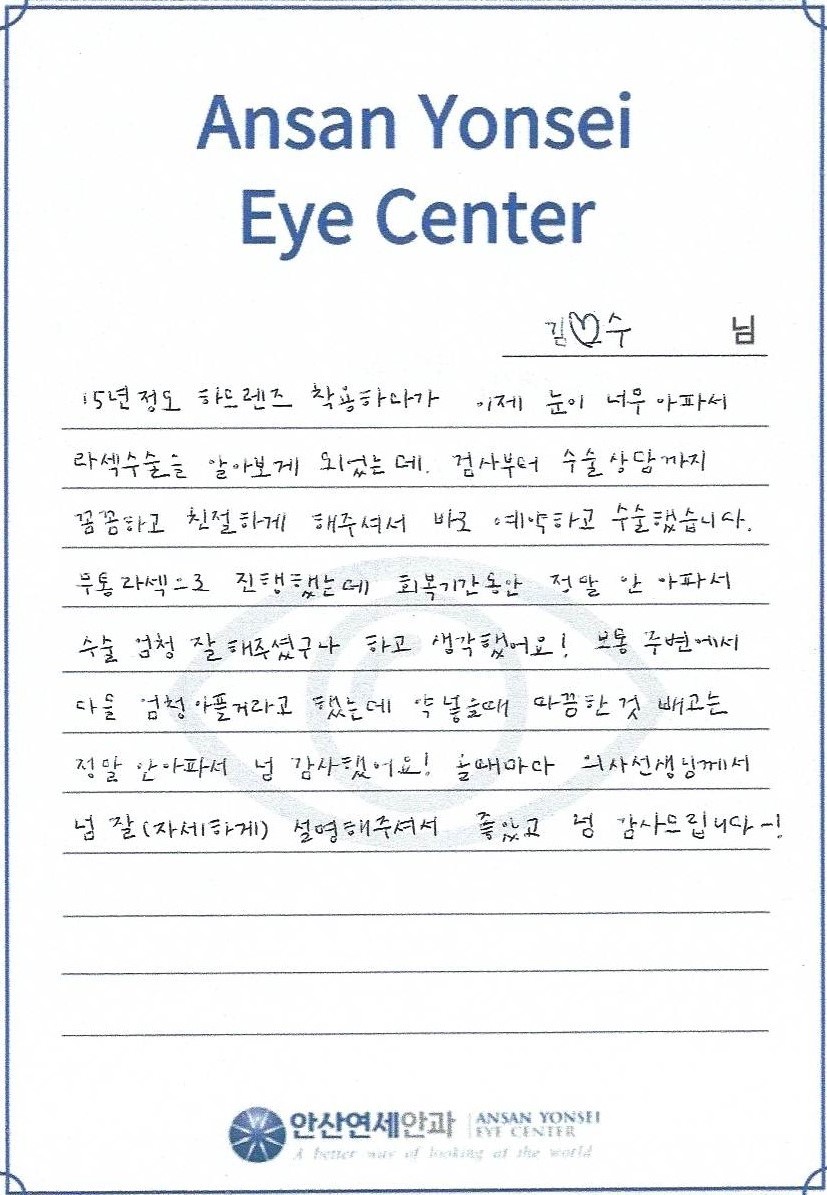 Ansan Yonsei
Eye Center
김♡수 님
15년정도 하드렌즈 착용하다가 이제 눈이 너무 아파서
라섹수술을 알아보게 되었는데. 검사부터 수술상담까지
꼼꼼하고 친절하게 해주셔서 바로 예약하고 수술했습니다.
무통라섹으로 진행했는데 회복기간동안 정말 안 아파서
수술 엄청 잘해주셨구나 하고 생각했어요! 보통 주변에서
다들 엄청아플거라고 했는데 약 넣을때 따끔한 것 빼고는
정말 안아파서 넘 감사했어요! 올때마다 의사선생님께서
넘 잘(자세하게) 설명해주셔서 좋았고 넘 감사드립니다~!
안산연세안과 ANSAN YONSEI
EYE CENTER
A better way of looking at the world